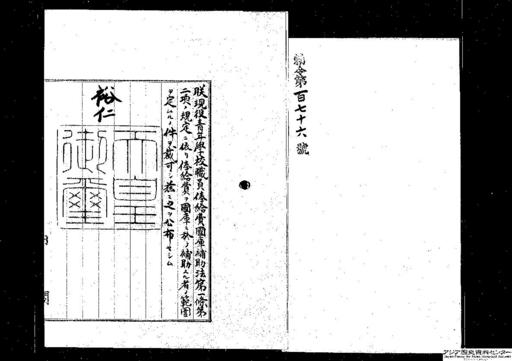 勅令第百七十六號
朕現役青年學校職員俸給費國庫補助法第一條第
二項ノ規定ニ依リ俸給費ヲ國庫ニ於テ補助スル者ノ範圍
ヲ定ムルノ件ヲ裁可シ茲ニ之ヲ公布セシム
裕仁
天皇
御璽
内
閣
アジア歴史資料センター
Japan Center for Asian Historical Records